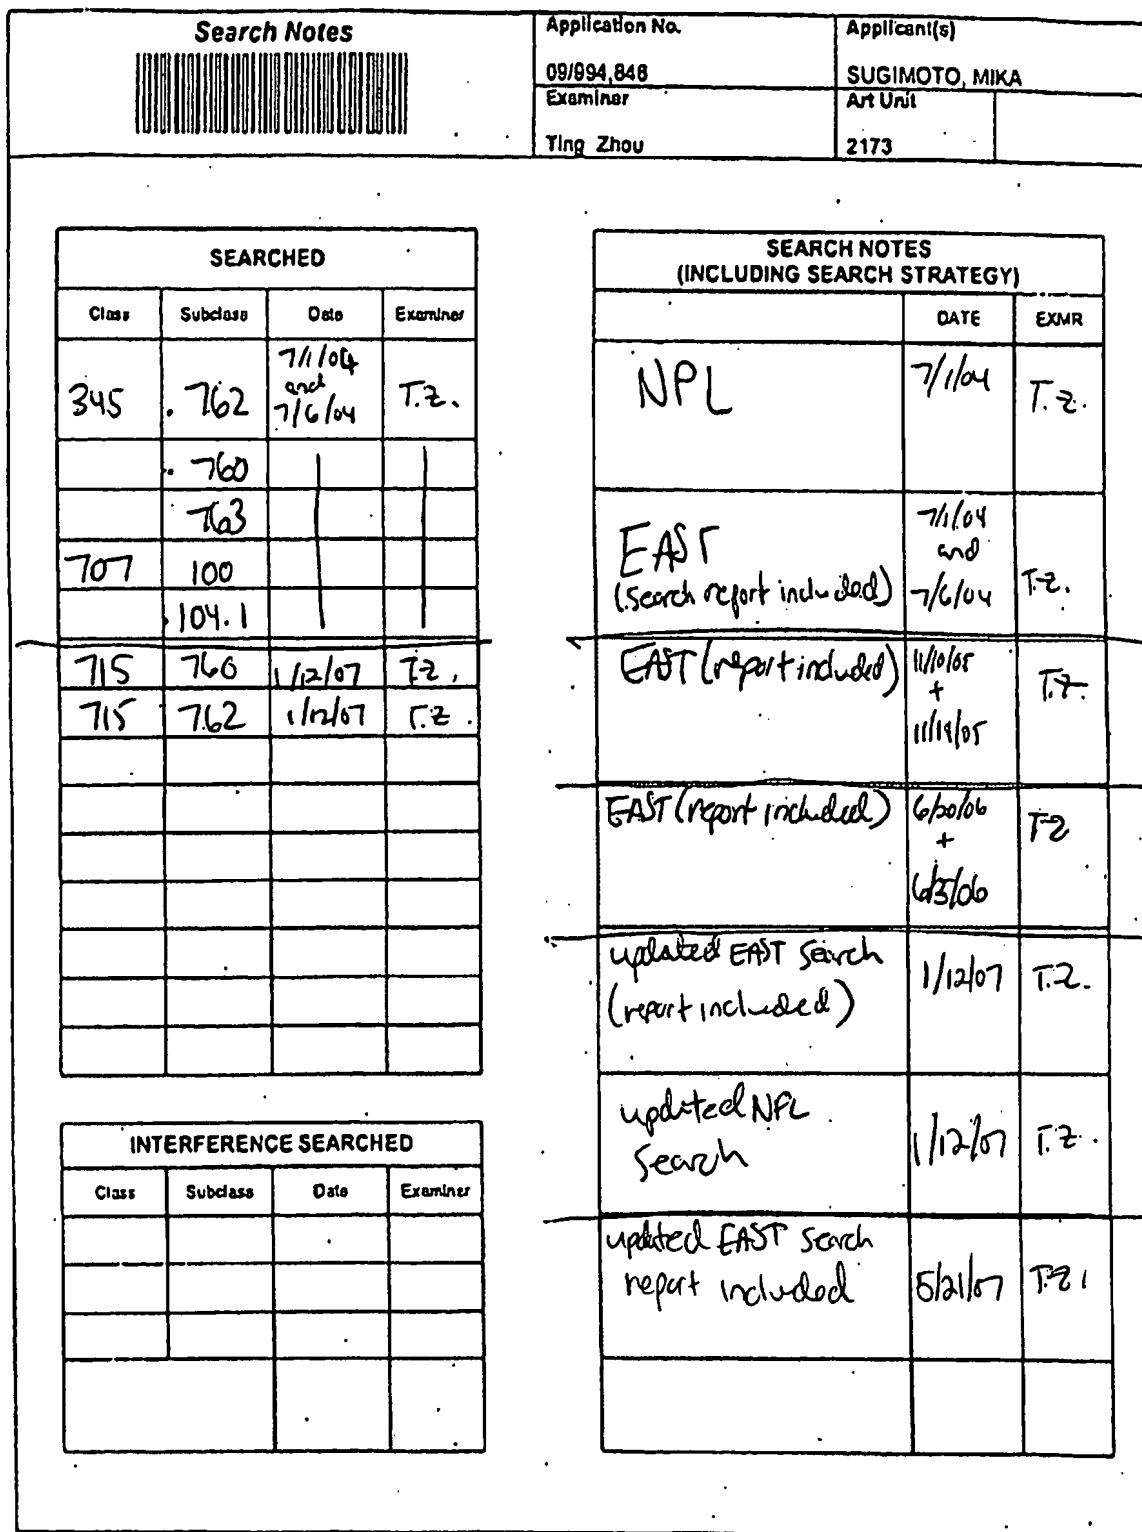 Search Notes
Application No.
Applicant(s)
09/994,846
SUGIMOTO, MIKA
Examiner
Art Unit
Ting Zhou
2173
SEARCHED
Class Subclass Date Examiner
345 762 7/1/04 and 7/6/04 T.Z.
760
763
707 100
104.1
715 760 1/12/07 T.Z.
715 762 1/12/07 T.Z.
INTERFERENCE SEARCHED
Class Subclass Date Examiner
SEARCH NOTES
(INCLUDING SEARCH STRATEGY)
DATE EXMR
NPL 7/1/04 T.Z.
EAST
(search report included)
7/1/04
and
7/6/04
T.Z.
EAST (report included)
11/10/05
+
T.Z.
EAST (report included)
+
T.Z
updated EAST search
(report included)
1/12/07 T.Z.
updated NPL
search
1/12/07 T.Z.
updated EAST search
report included
5/21/07 T.Z.